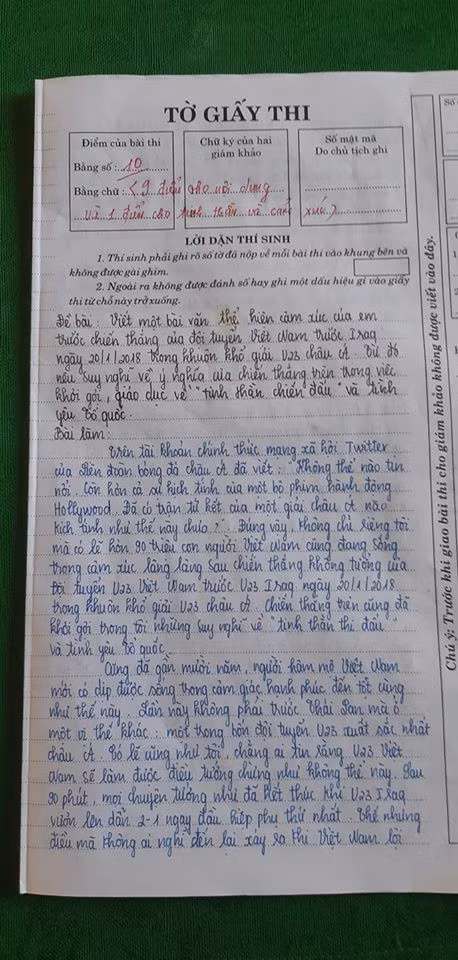 TỜ GIẤY THI
Điểm của bài thi
Bằng số : 10
Bằng chữ : (9 điểm cho nội dung
và 1 điểm cho tinh thần và cảm xúc)
Chữ ký của hai
giám khảo
Số mật mã
Do chủ tịch ghi
LỜI DẶN THÍ SINH
1. Thí sinh phải ghi rõ số tờ đã nộp về mỗi bài thi vào khung bên và
không được gài ghim.
2. Ngoài ra không được đánh số hay ghi một dấu hiệu gì vào giấy
thi từ chỗ này trở xuống.
Đề bài : Viết một bài văn thể hiện cảm xúc của em
trước chiến thắng của đội tuyển Việt Nam trước Iraq
ngày 20/1/2018 trong khuôn khổ giải U23 châu Á. Từ đó
nêu suy nghĩ về ý nghĩa của chiến thắng trên trong việc
khơi gợi, giáo dục về "tinh thần chiến đấu" và tình
yêu Tổ quốc.
Bài làm:
Trên tài khoản chính thức mạng xã hội Twitter
của Liên đoàn bóng đá châu Á đã viết : "Không thể nào tin
nổi. Còn hơn cả sự kịch tính của một bộ phim hành động
Hollywood. Đã có trận tứ kết của một giải châu Á nào
kịch tính như thế này chưa ?". Đúng vậy, không chỉ riêng tôi
mà có lẽ hơn 90 triệu con người Việt Nam cũng đang sống
trong cảm xúc lâng lâng sau chiến thắng không tưởng của
đội tuyển U23 Việt Nam trước U23 Iraq ngày 20/1/2018
trong khuôn khổ giải U23 châu Á. Chiến thắng trên cũng đã
khơi gợi trong tôi những suy nghĩ về "tinh thần thi đấu"
và tình yêu Tổ quốc.
Cũng đã gần mười năm, người hâm mộ Việt Nam
mới có dịp được sống trong cảm giác hạnh phúc đến tột cùng
như thế này. Lần này không phải trước Thái Lan mà ở
một vị thế khác : một trong bốn đội tuyển U23 xuất sắc nhất
châu Á. Có lẽ cũng như tôi, chẳng ai tin rằng U23 Việt
Nam sẽ làm được điều tưởng chừng như không thể này. Sau
90 phút, mọi chuyện tưởng như đã kết thúc khi U23 Iraq
vươn lên dẫn 2-1 ngay đầu hiệp phụ thứ nhất. Thế nhưng
điều mà không ai nghĩ đến lại xảy ra khi Việt Nam lội
Chú ý: Trước khi giao bài thi cho giám khảo không được viết vào đây.